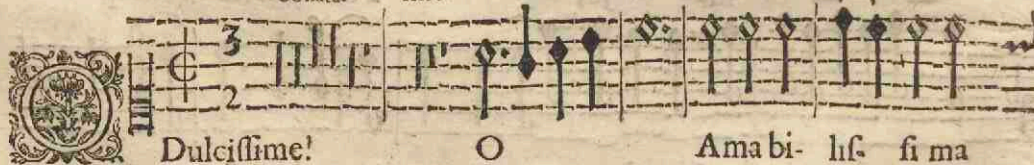 3
2
O Dulcissime! O Amabi- lis- si ma